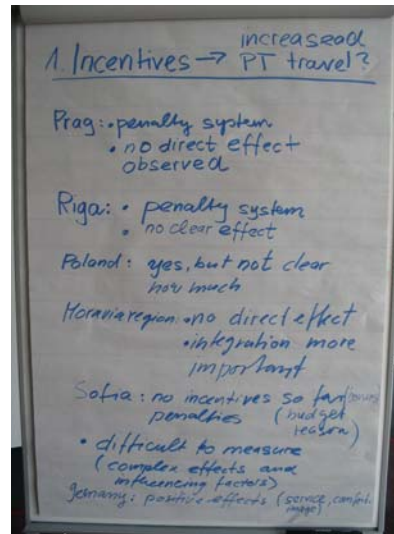 increasead
1. Incentives → PT travel?
Prag: • penalty system
• no direct effect
observed
Riga: • penalty system
• no clear effect
Poland: yes, but not clear
how much
Moravia region: • no direct effect
• integration more
important
Sofia: no incentives so far
penalties (budget
reason)
• difficult to measure
(complex effects and
influencing factors)
Germany: positive effects (service, comfort,
image)